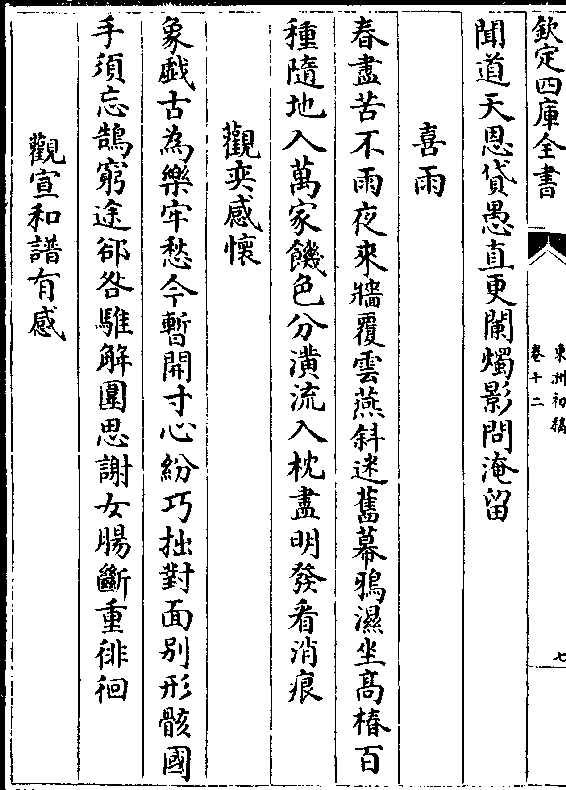 欽定四庫全書
東洲初稿
卷十二
七
聞道天恩貸愚直更闌燭影問淹留
喜雨
春盡苦不雨夜來牆覆雲燕斜迷舊幕鴉濕坐高椿百
種隨地入萬家饑色分潢流入枕盡明發看消痕
觀奕感懷
象戱古為樂牢愁今暫開寸心紛巧拙對面别形骸國
手須忘鵠窮途郤咎騅解圍思謝女腸斷重徘徊
觀宣和譜有感